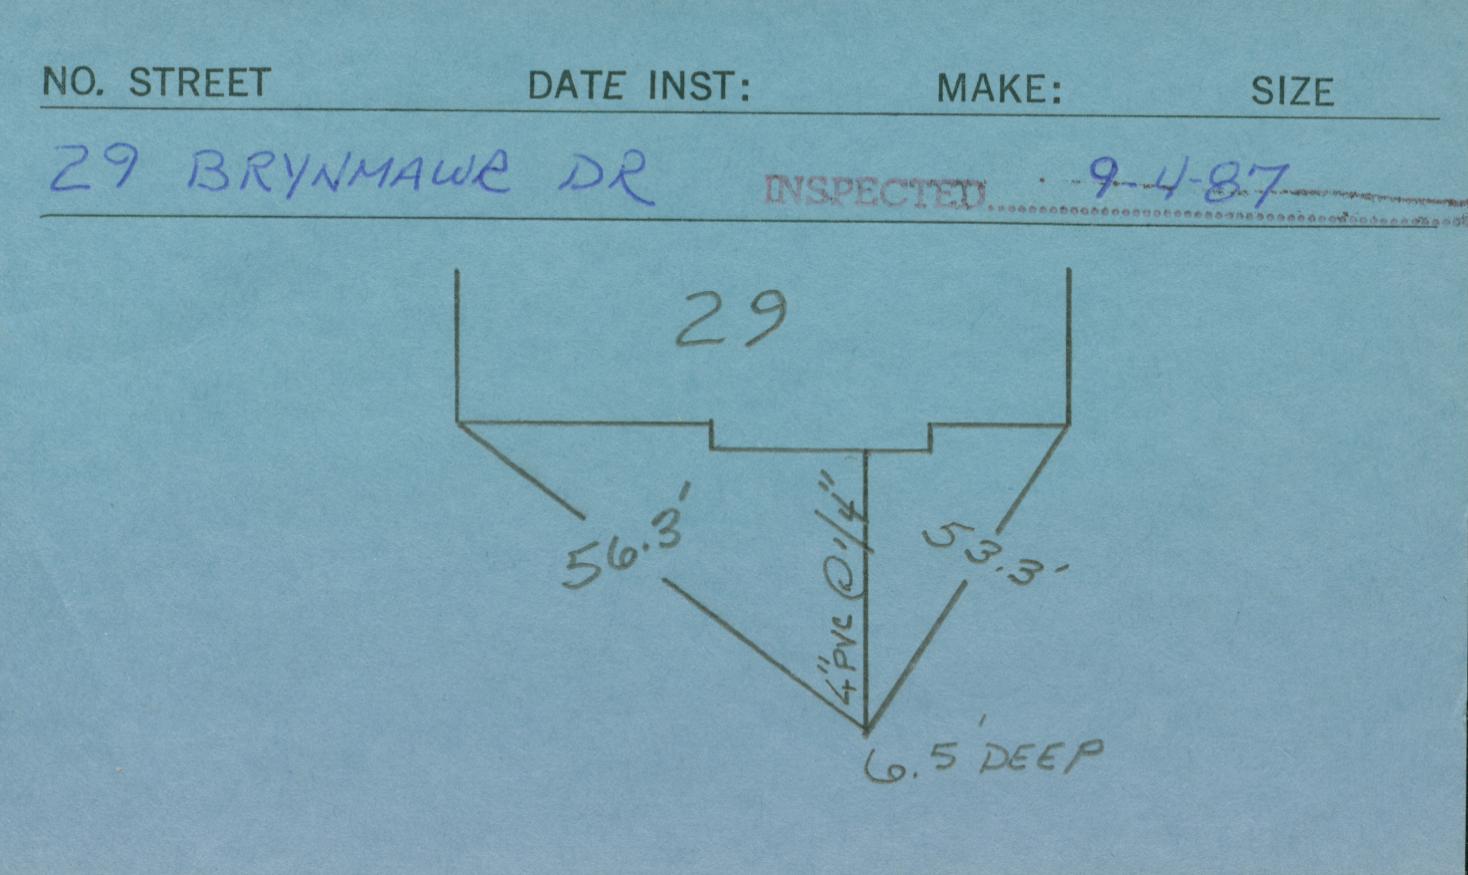 NO. STREET DATE INST: MAKE: SIZE
29 BRYNMAWR DR INSPECTED 9-4-87
29
56.3'
4" PVC @ 1/4"
53.3'
6.5' DEEP